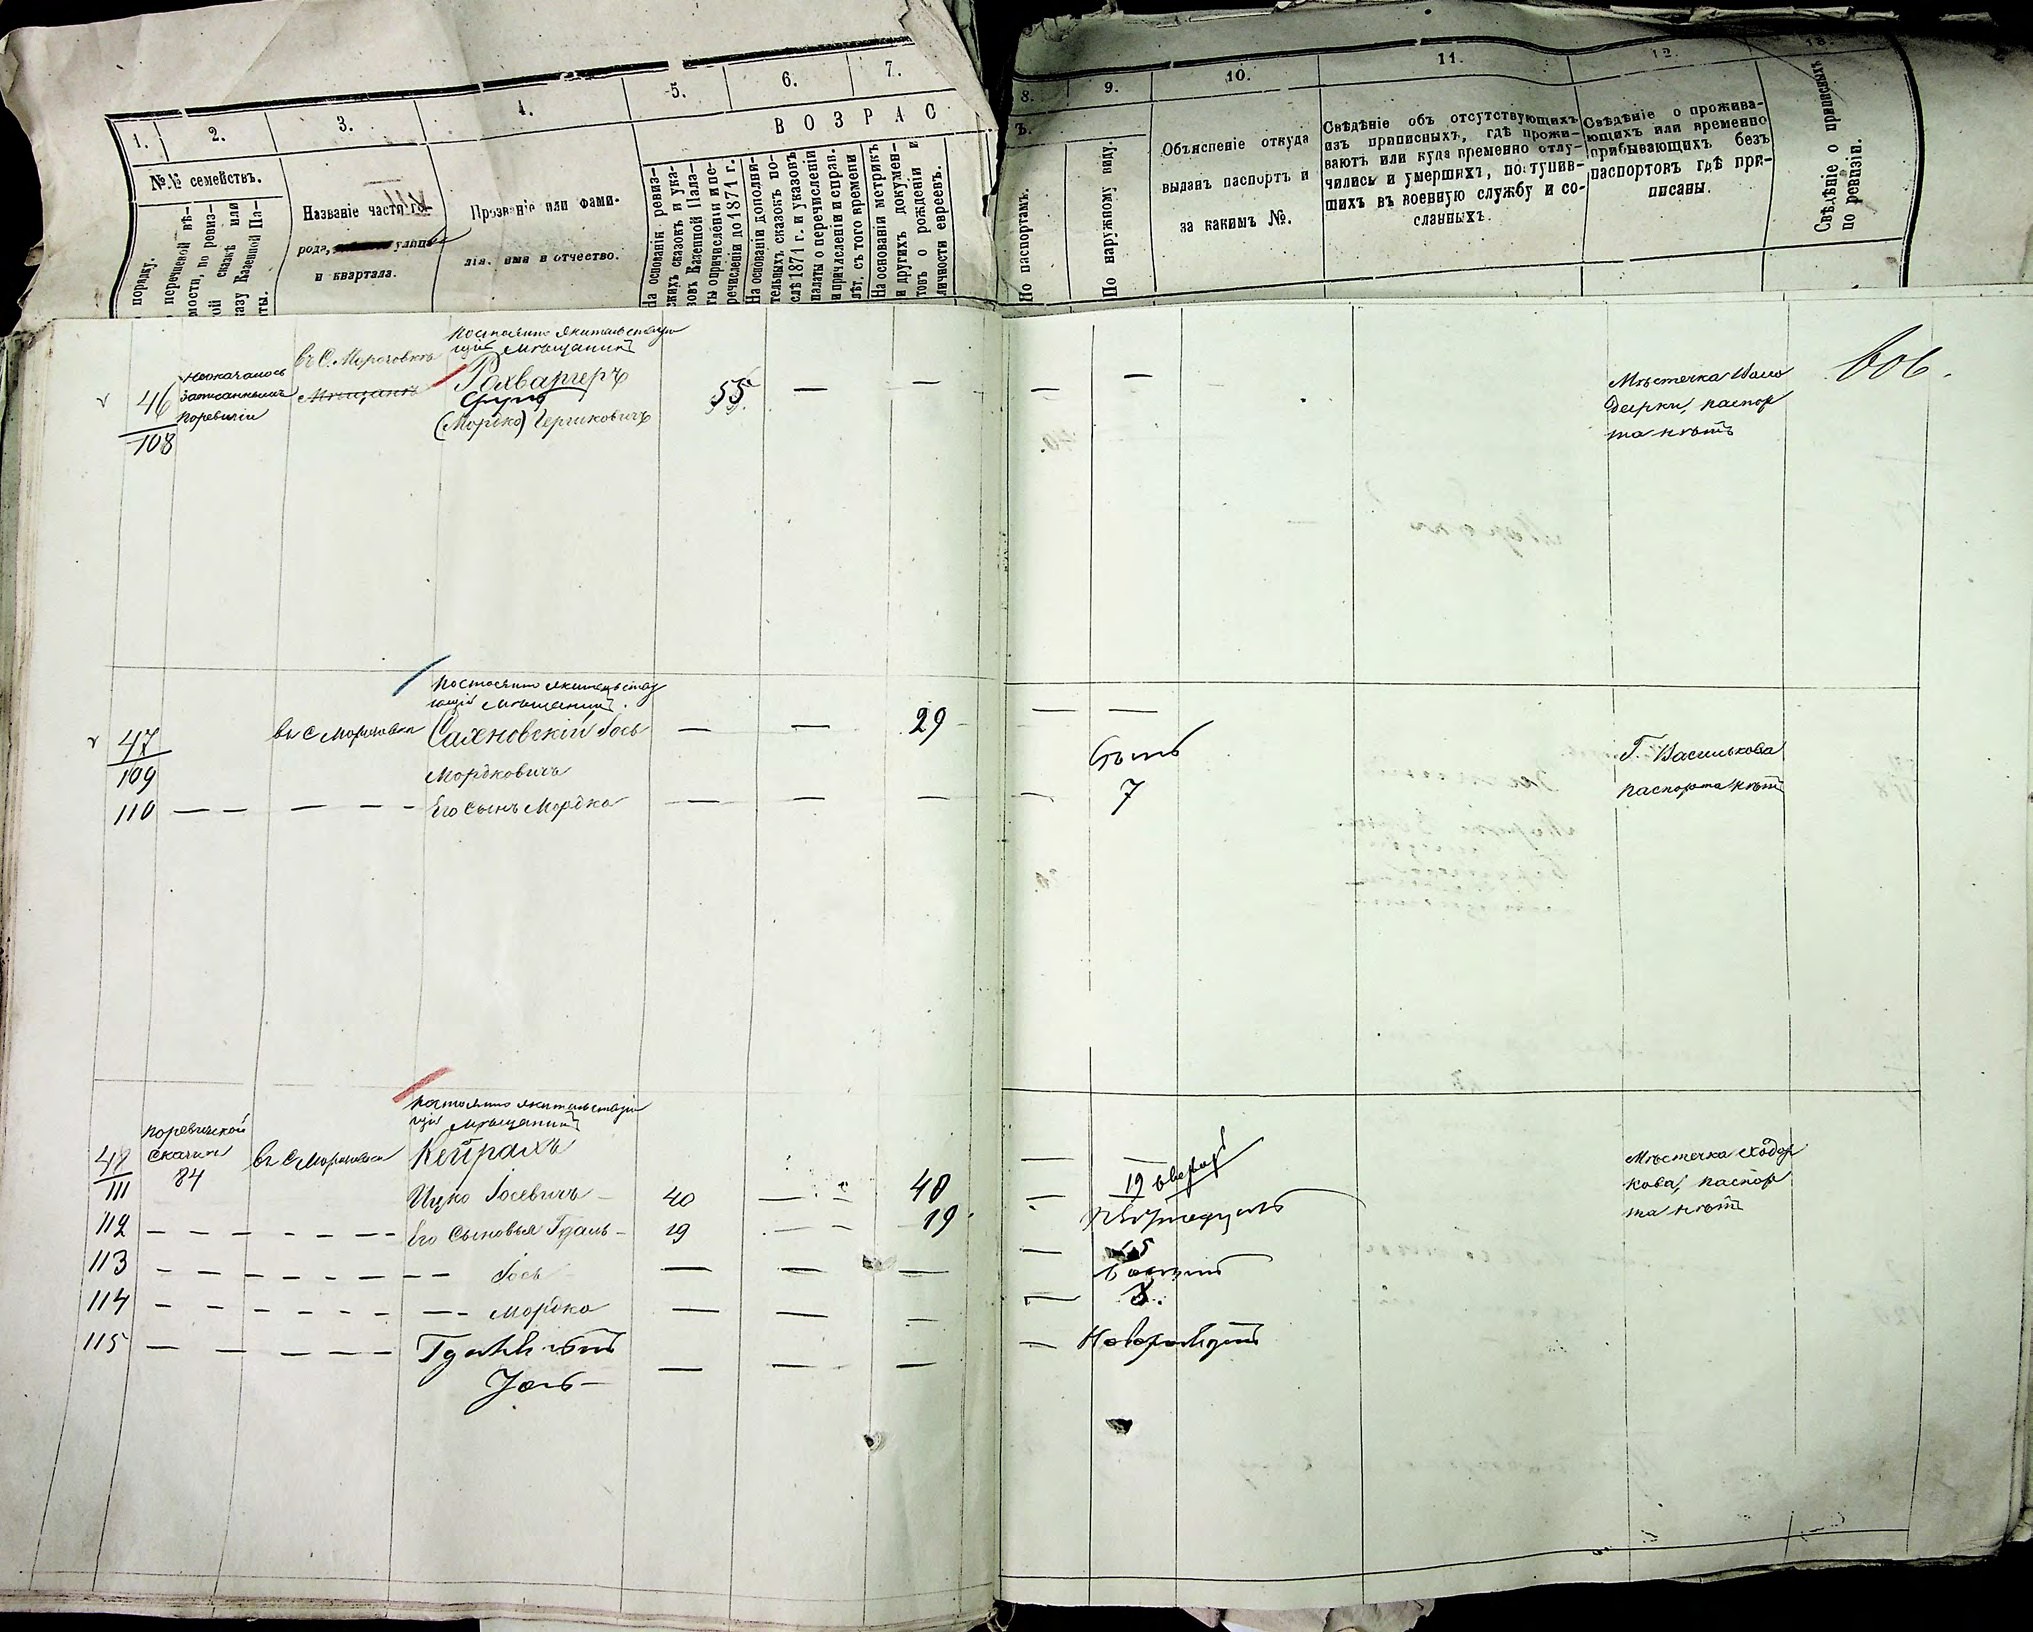 1.
2.
3.
4.
5.
6.
7.
№№ семействъ.
порядку.
перечневой вѣ-
мости, по ревиз-
ой сказкѣ или
казу Казенной Па-
ты.
Названіе части го-
рода, улицы
и квартала.
VIII
Прозваніе или фами-
лія, имя и отчество.
ВОЗРАС
На основаніи ревиз-
скихъ сказокъ и ука-
зовъ Казенной Пала-
ты о причисленіи и пе-
речисленіи до 1871 г.
На основаніи дополни-
тельныхъ сказокъ по-
слѣ 1871 г. и указовъ
палаты о перечисленіи
и причисленіи и исправ.
лѣт. съ того времени
На основаніи метрикъ
и другихъ докумен-
товъ о рожденіи и
личности евреевъ.
8.
9.
10.
11.
12.
13.
Ъ.
По паспортамъ.
По наружному виду.
Объясненіе откуда
выданъ паспортъ и
за какимъ №.
Свѣдѣніе объ отсутствующихъ
изъ приписныхъ, гдѣ прожи-
ваютъ или куда временно отлу-
чились и умершихъ, поступив-
шихъ въ военную службу и со-
сланныхъ.
Свѣдѣніе о прожива-
ющихъ или временно
прибывающихъ безъ
паспортовъ гдѣ при-
писаны.
Свѣдѣніе о приписныхъ
по ревизіи.
46
108
неоказалось
записаннымъ
поревизіи
въ С. Морозовкѣ
Мѣщанъ
Постоянно жительствую
щій Мѣщанинъ
Рахваргеръ
Сруль
(Мордко) Гершковичъ
55
— — — —
Мѣстечка Воло
дарки, паспор
та нѣтъ
47
109
въ С Морозовки
Постоянно жительству
ющій Мѣщанинъ.
Сахновскій Іось
Мордковичъ
— — 29 — —
Г. Василькова
паспорта нѣтъ
110
Его сынъ Мордко
— — — — 7
48
111
поревизской
сказки
84
въ С Морозовки
Постоянно жительствую
щій Мѣщанинъ
Кейрахъ
Ицко Іосевичъ
40 — 40
Мѣстечка Сходор
кова, паспор
та нѣтъ
112
Его Сыновья Гдаль
19 — 19
113
Іось
— — — —
114
Мордко
— — — — 8.
115
— — — —